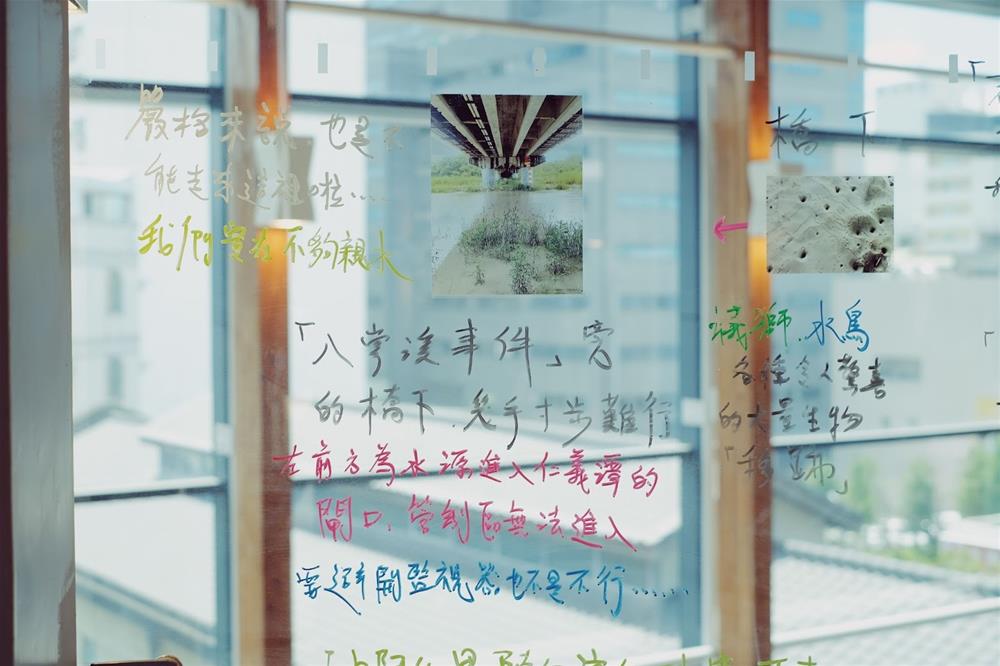 嚴格來說 也是不
能走到這裡啦....
我們實在不夠親水
「八掌溪事件」
的橋下,幾乎寸步難行
左前方為水源進入仁義潭的
閘口,管制區無法進入
要避開監視器也不是不行......
橋下
蟻獅.水鳥
各種令人驚喜
的大量生物